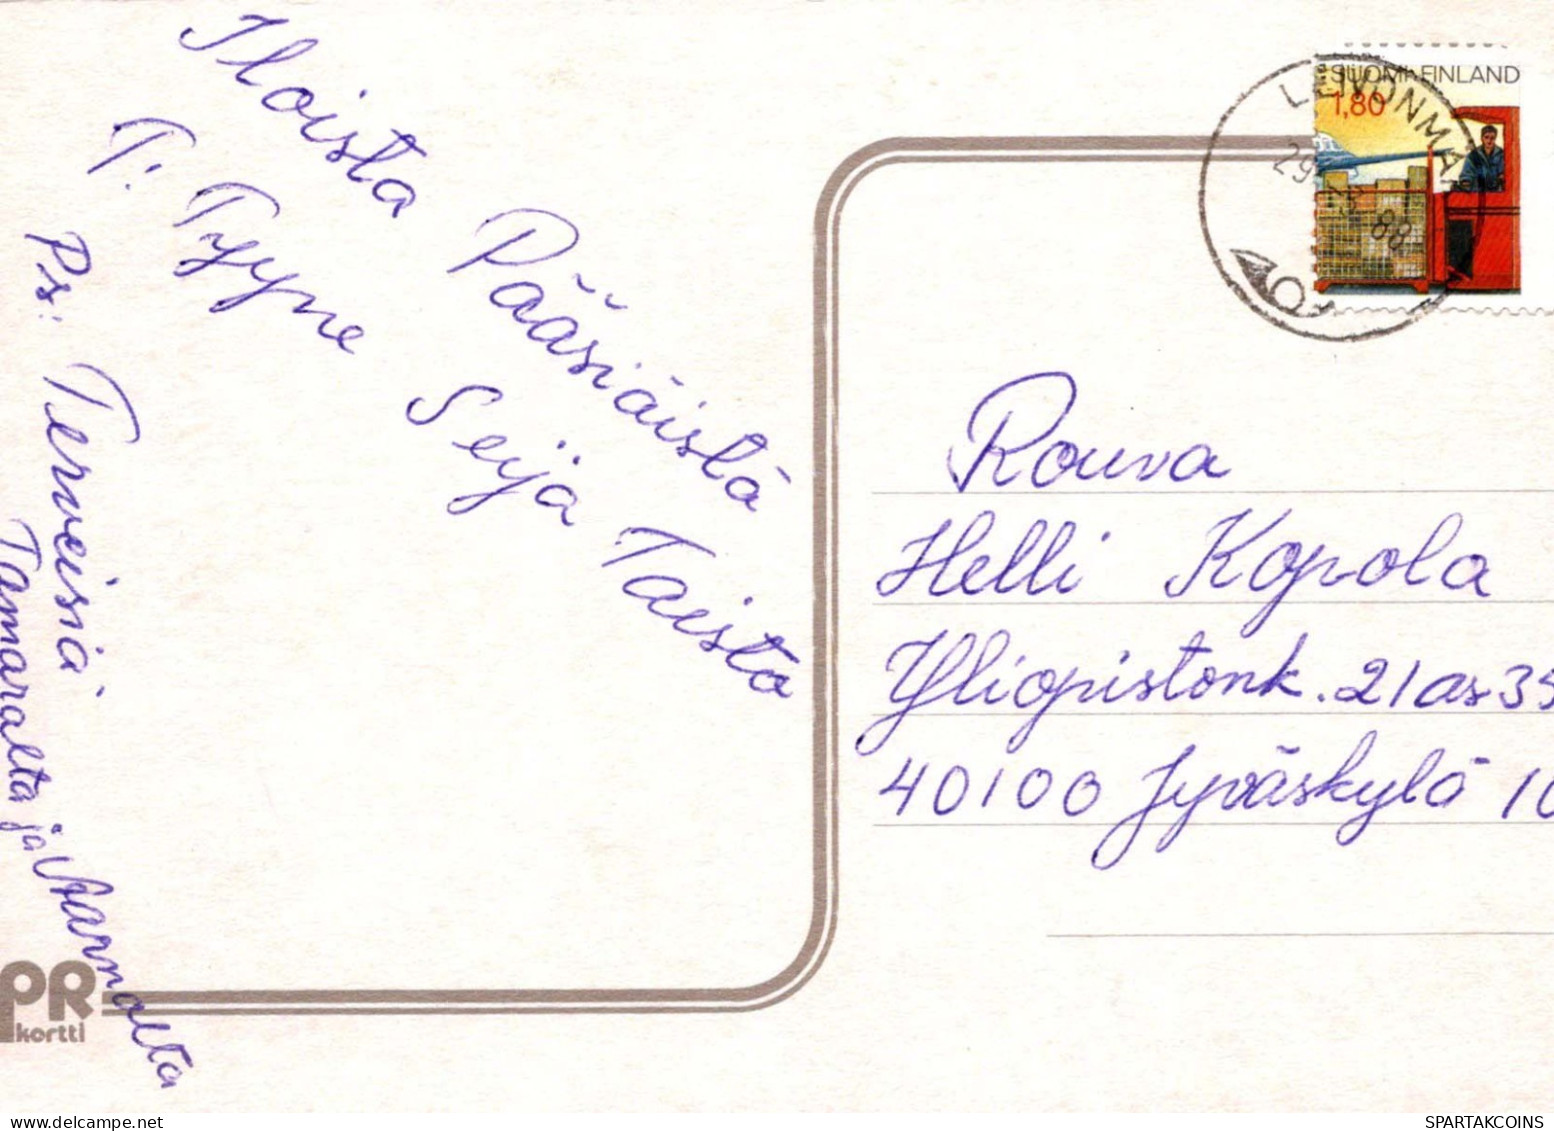 Iloista Pääsiäistä
T: Tyyne Seija Taisto
Ps: Terveisiä
Tamaralta ja Aarnolta
PR
kortti
SUOMI-FINLAND
1,80
LEIVONMÄ
29 88
Rouva
Helli Kopola
Yliopistonk. 21 as 35
40100 Jyväskylä 10
SPARTAKCOINS